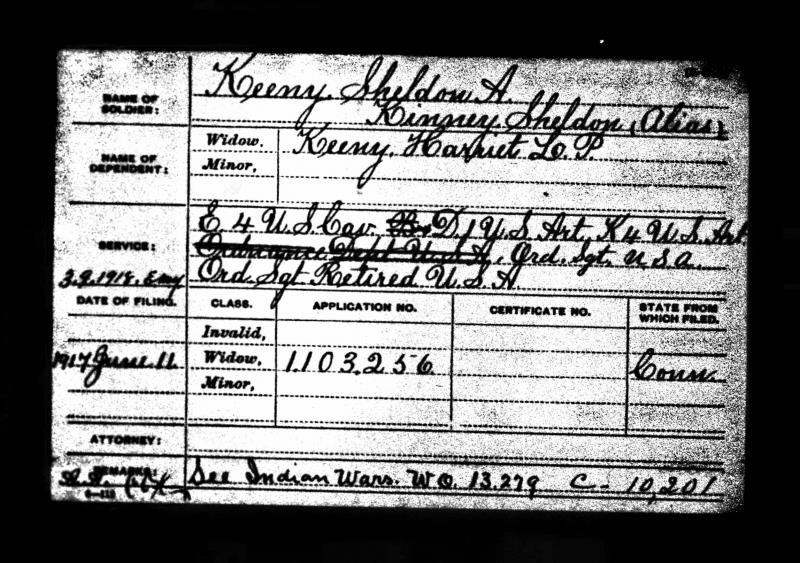 NAME OF SOLDIER:
Keeny, Sheldon A.
Kinney, Sheldon (Alias)
NAME OF DEPENDENT:
Widow. Keeny, Harriet L. P.
Minor,
SERVICE:
E 4 U.S. Cav. D, 1 U.S. Art, K 4 U.S. Art.
Ordnance Dept U.S.A, Ord. Sgt. U.S.A.
Ord. Sgt Retired U.S.A.
DATE OF FILING. CLASS. APPLICATION NO. CERTIFICATE NO. STATE FROM WHICH FILED.
Invalid,
1917 June 11 Widow, 1103,256 Conn.
Minor,
ATTORNEY:
REMARKS: See Indian Wars. W.O. 13,279 C- 10,201